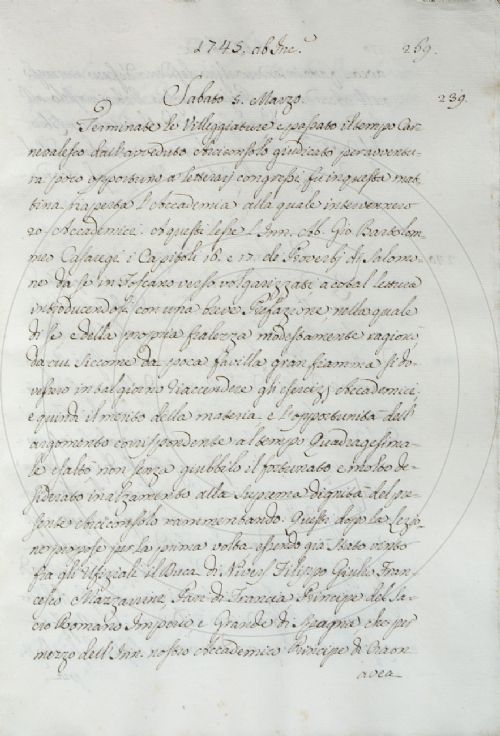 1745. ab Inc.
269.
Sabato 5. Marzo.
239.
Terminate le Villeggiature e passato il tempo Car-
nevalesco dall'avveduto Arciconsolo giudicato per avventu-
ra poco opportuno a letterarj congressi fù in questa mat-
tina riaperta l'Accademia alla quale intervennero
Accademici: e questi lesse l'Inn. Ab. Gio Bartolom-
meo Casaregi i Capitoli 16. e 17. de Proverbj di Salomo-
ne da se in Toscano verso volgarizzati a cotal lettura
introducendosi con una breve Prefazione nella quale
di se e della propria fralezza modestamente ragionò
da cui siccome da poca favilla gran fiamma si do-
vessero in tal giorno riaccendere gli esercizj Accademici,
e quindi il merito della materia e l'opportunità dell'
argomento corrispondente al tempo Quadragesima-
le esaltò non senza giubbilo il fortunato e molto de-
siderato inalzamento alla suprema dignità del pre-
sente Arciconsolo rammentando. Questi dopo la lezio-
ne propose per la prima volta essendo già stato vinto
fra gli Ufiziali il Duca di Nivers Filippo Giulio Fran-
cesco Mazzarini, Pari di Francia Principe del Sa-
cro Romano Imperio e Grande di Spagna che per
mezzo dell'Inn. nostro Accademico Principe di Craon
avea